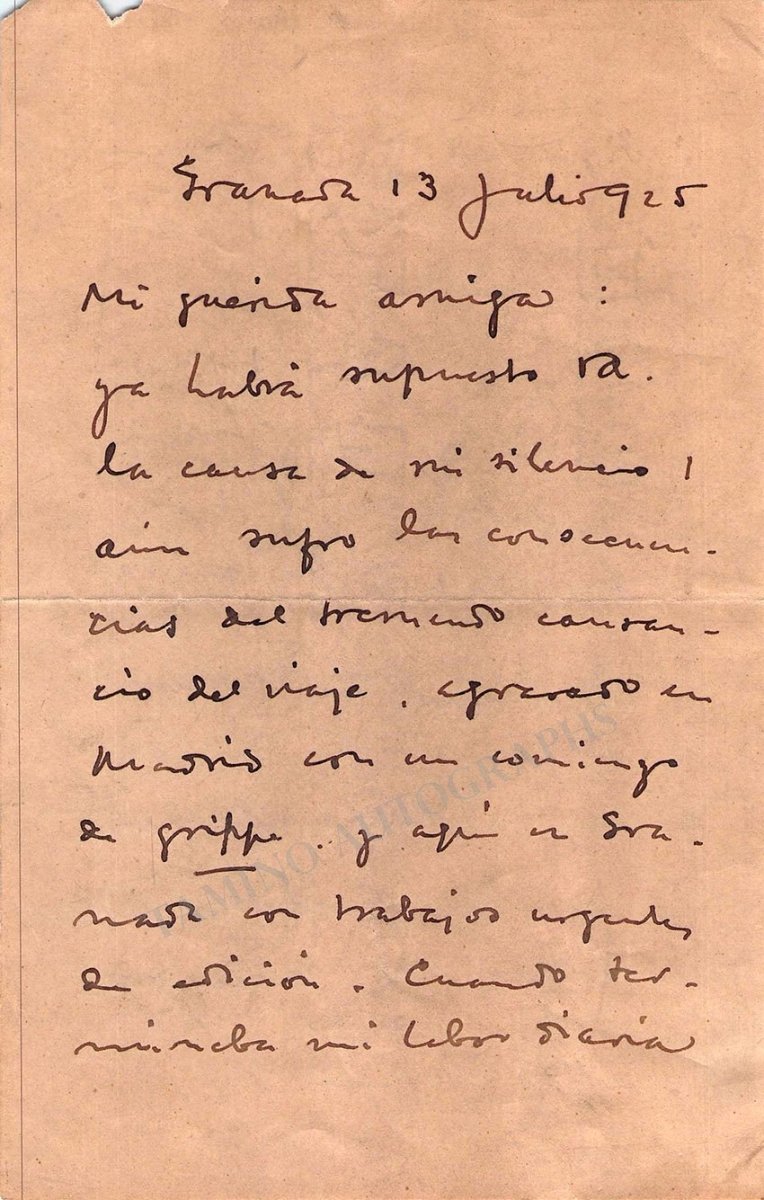 Granada 13 Julio 925
Mi querida amiga :
ya habrá supuesto Vd.
la causa de mi silencio !
aún sufro las consecuen-
cias del tremendo cansan-
cio del viaje, agravado en
Madrid con un comienzo
de grippe, y aquí en Gra-
nada con trabajos urgentes
de edición. Cuando ter-
minaba mi labor diaria
TAMINO AUTOGRAPHS